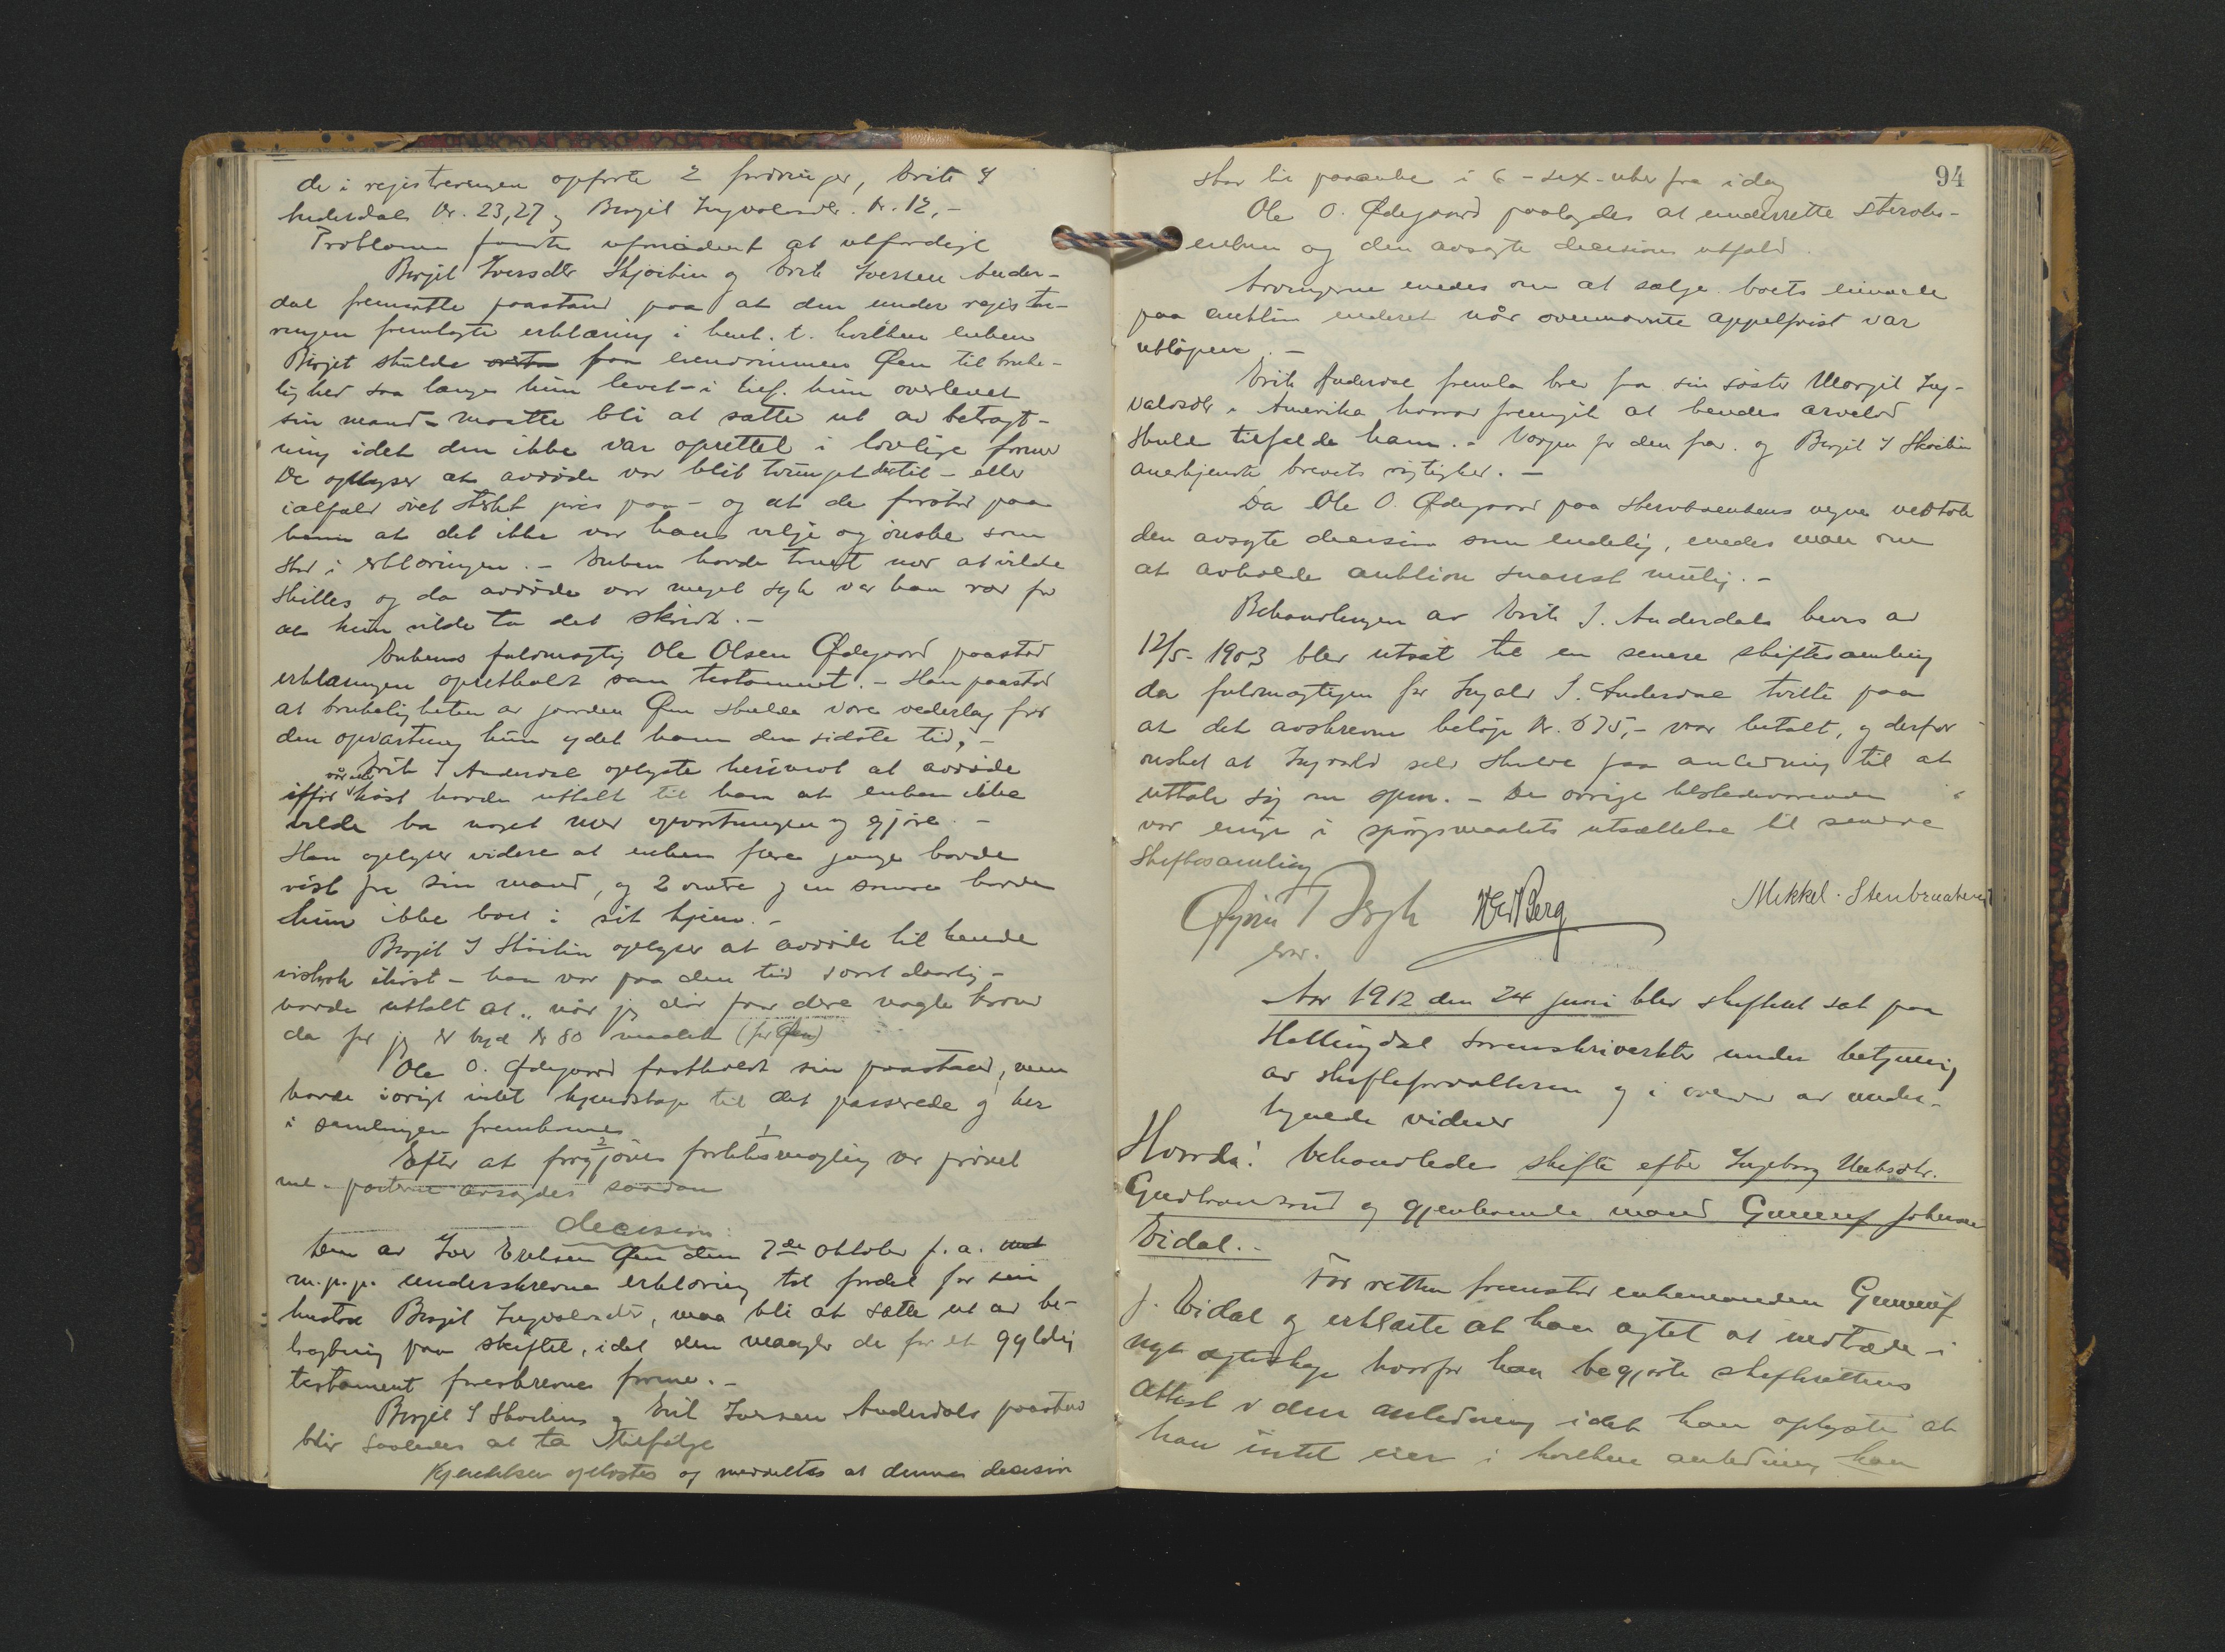 de i registreringen opførte 2 fordringer, Erik I
Anderdals Kr. 23,27 og Birgit Ingvalsdtr. Kr. 12,-
Proklama fandtes ufornødent at utferdige
Birgit Iversdtr Skjøitin og Erik Iversen Ander-
dal fremsatte paastand paa at den under registre-
ringen fremlagte erklæring i henh. t. hvilken enken
Birgit skulde faa eiendommen Øen til bruke-
lighed saa længe hun levet i tilf. hun overlevet
sin mand - maatte bli at sætte ut av betragt-
ning idet den ikke var oprettet i lovlige former
De oplyser at avdøde var blit tvunget dertil - eller
ialfald øvet sterkt pres paa - og at de forstod paa
ham at det ikke var hans vilje og ønske som
stod i erklæringen. - Enken havde truet med at ville
skilles og da avdøde var meget syk var han rød for
at hun vilde ta det skridt. -
Enkens fuldmægtig Ole Olsen Ødegaard paastod
erklæringen opretholdt som testament. - Han paastod
at brukeligheten av jorden Øen skulde være vederlag for
den opvartning hun ydet ham den sidste tid. -
Erik I Anderdal oplyste herimot at avdøde
ifjor høst havde uttalt til ham at enken ikke
vilde ha noget med opvartningen og gjøre. -
Han oplyser videre at enken flere gange havde
reist fra sin mand, og 2 vintre og en sommer havde
hun ikke boet i sit hjem. -
Birgit I Skøitin oplyser at avdøde til hende
ihøst - han var paa den tid daarlig -
havde uttalt at "når jeg dør faar dere nogle kroner
da for jeg er byd Kr 80 maalet (for Øen)
Ole O. Ødegaard fastholdt sin paastand, men
havde iøvrigt intet kjendskap til det passerede og her
i samlingen fremkomne
Efter at forgjæves forliksmægling var prøvet
mel. parterne avsagdes saadan
decision:
Den av Iver Eriksen Øen den 7de oktober f. a.
m. p. p. underskrevne erklæring til fordel for sin
hustru Birgit Ingvalsdtr, maa bli at sætte ut av be-
tragtning paa skiftet, idet den mangler de for et gyldig
testament foreskrevne former. -
Birgit I Skøitins og Erik Iversen Anderdals paastand
blir saaledes at ta tilfølge
Kjendelsen oplæstes og meddeltes at denne decision
94
skar bli paaanke i 6 - sex - uker fra idag
Ole O. Ødegaard paalagdes at underrette stervbo-
enken og den avsagte decisions utfald.
Arvingerne enedes om at sælge boets eiendele
paa auktion når ovennævnte appelfrist var
utløpen. -
Erik Anderdal fremla brev fra sin søster Margit Ing-
valdsdtr i Amerika hvorav fremgik at hendes arvelod
skulde tilfalde ham. - Vergen for den frav. og Birgit I Skøitin
anerkjendte brevets rigtighet. -
Da Ole O. Ødegaard paa stervboenkens vegne vedtok
den avsagte decision som endelig, enedes man om
at avholde auktion snarest mulig. -
Behandlingen av Erik I. Anderdals bevis av
12/5 - 1903 blev utsat til en senere skiftesamling
da fuldmægtigen for Ingvald I. Anderdal tvilte paa
at det avskrevne beløp Kr. 675,- var betalt, og derfor
ønsket at Ingvald selv skulde faa anledning til at
uttale sig om spm. - De øvrige tilstedeværende
var enige i spørgsmaalets utsættelse til senere
skiftesamling
W Berg
Mikkel Stenbraaten
Aar 1912 den 24 juni blev skifteret sat paa
Hallingdal sorenskriverkt. under betjening
av skifteforvalteren og i overvær av under-
tegnede vidner
Hvorda: behandledes skifte efter Ingeborg
Gudbrandsrud og gjenlevende mand Gunnuf Johnsen
Eidal. -
For retten fremstod enkemanden Gunnuf
J. Eidal og erklærte at han agtet at indtræde i
nyt egteskap hvorfor han begjærte skifterettens
attest i den anledning idet han oplyste at
han intet eier i hvilken anledning han